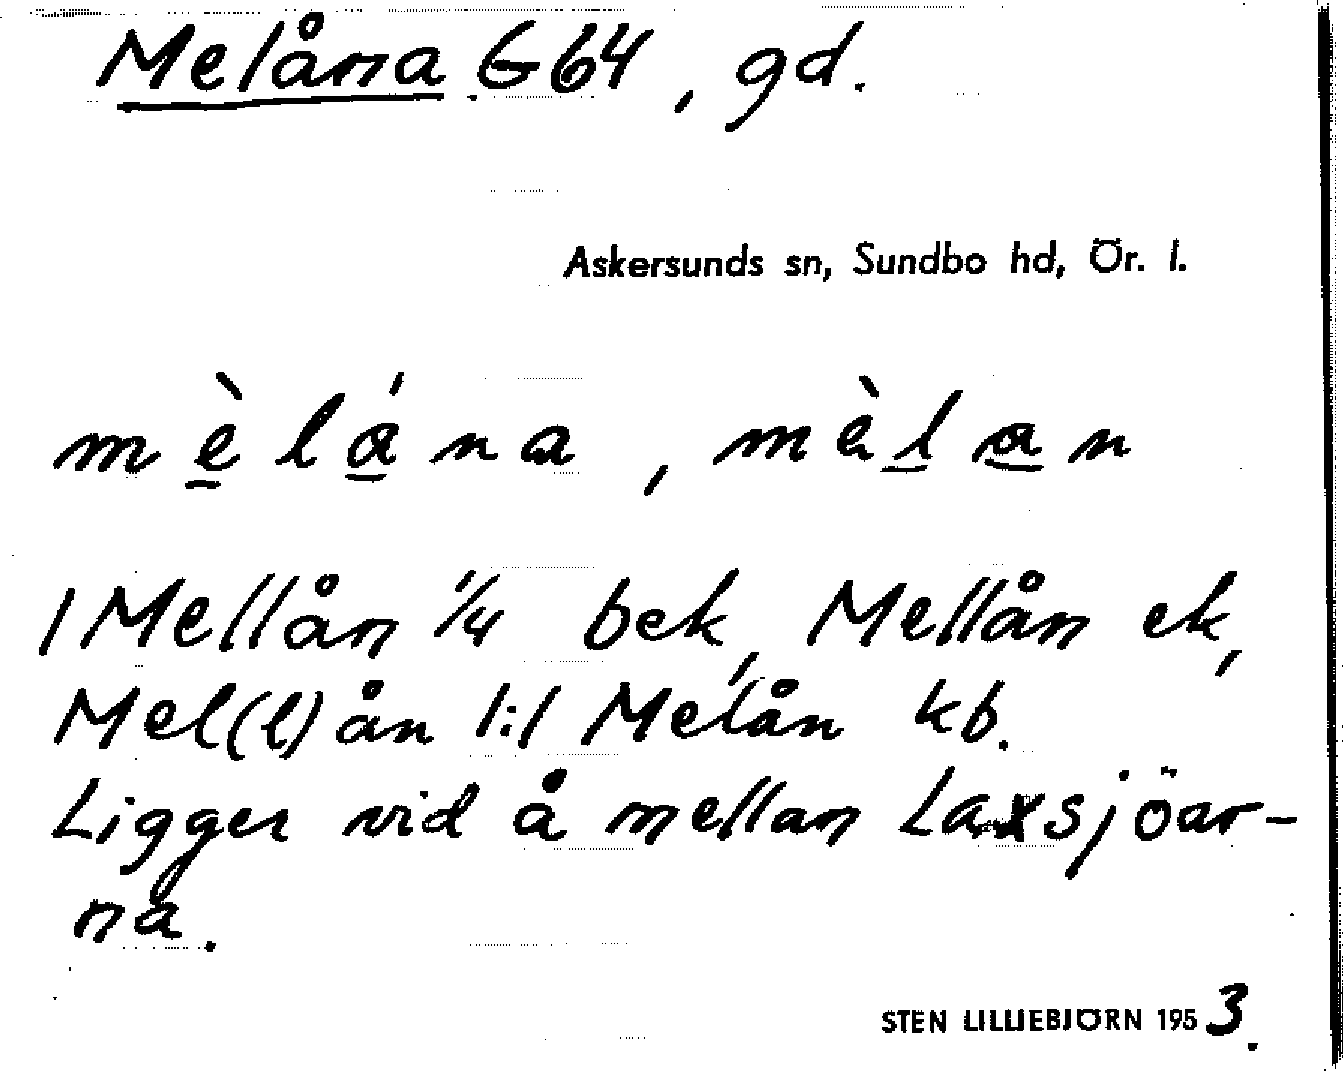 Melåna G64, gd.
Askersunds sn, Sundbo hd, Ör. l.
mèlána, mèlan
1 Mellån 1/4 bek, Mellån ek,
Mel(l)ån 1:1 Melån kb.
Ligger vid å mellan Laxsjöar-
na.
STEN LILLIEBJÖRN 1953.